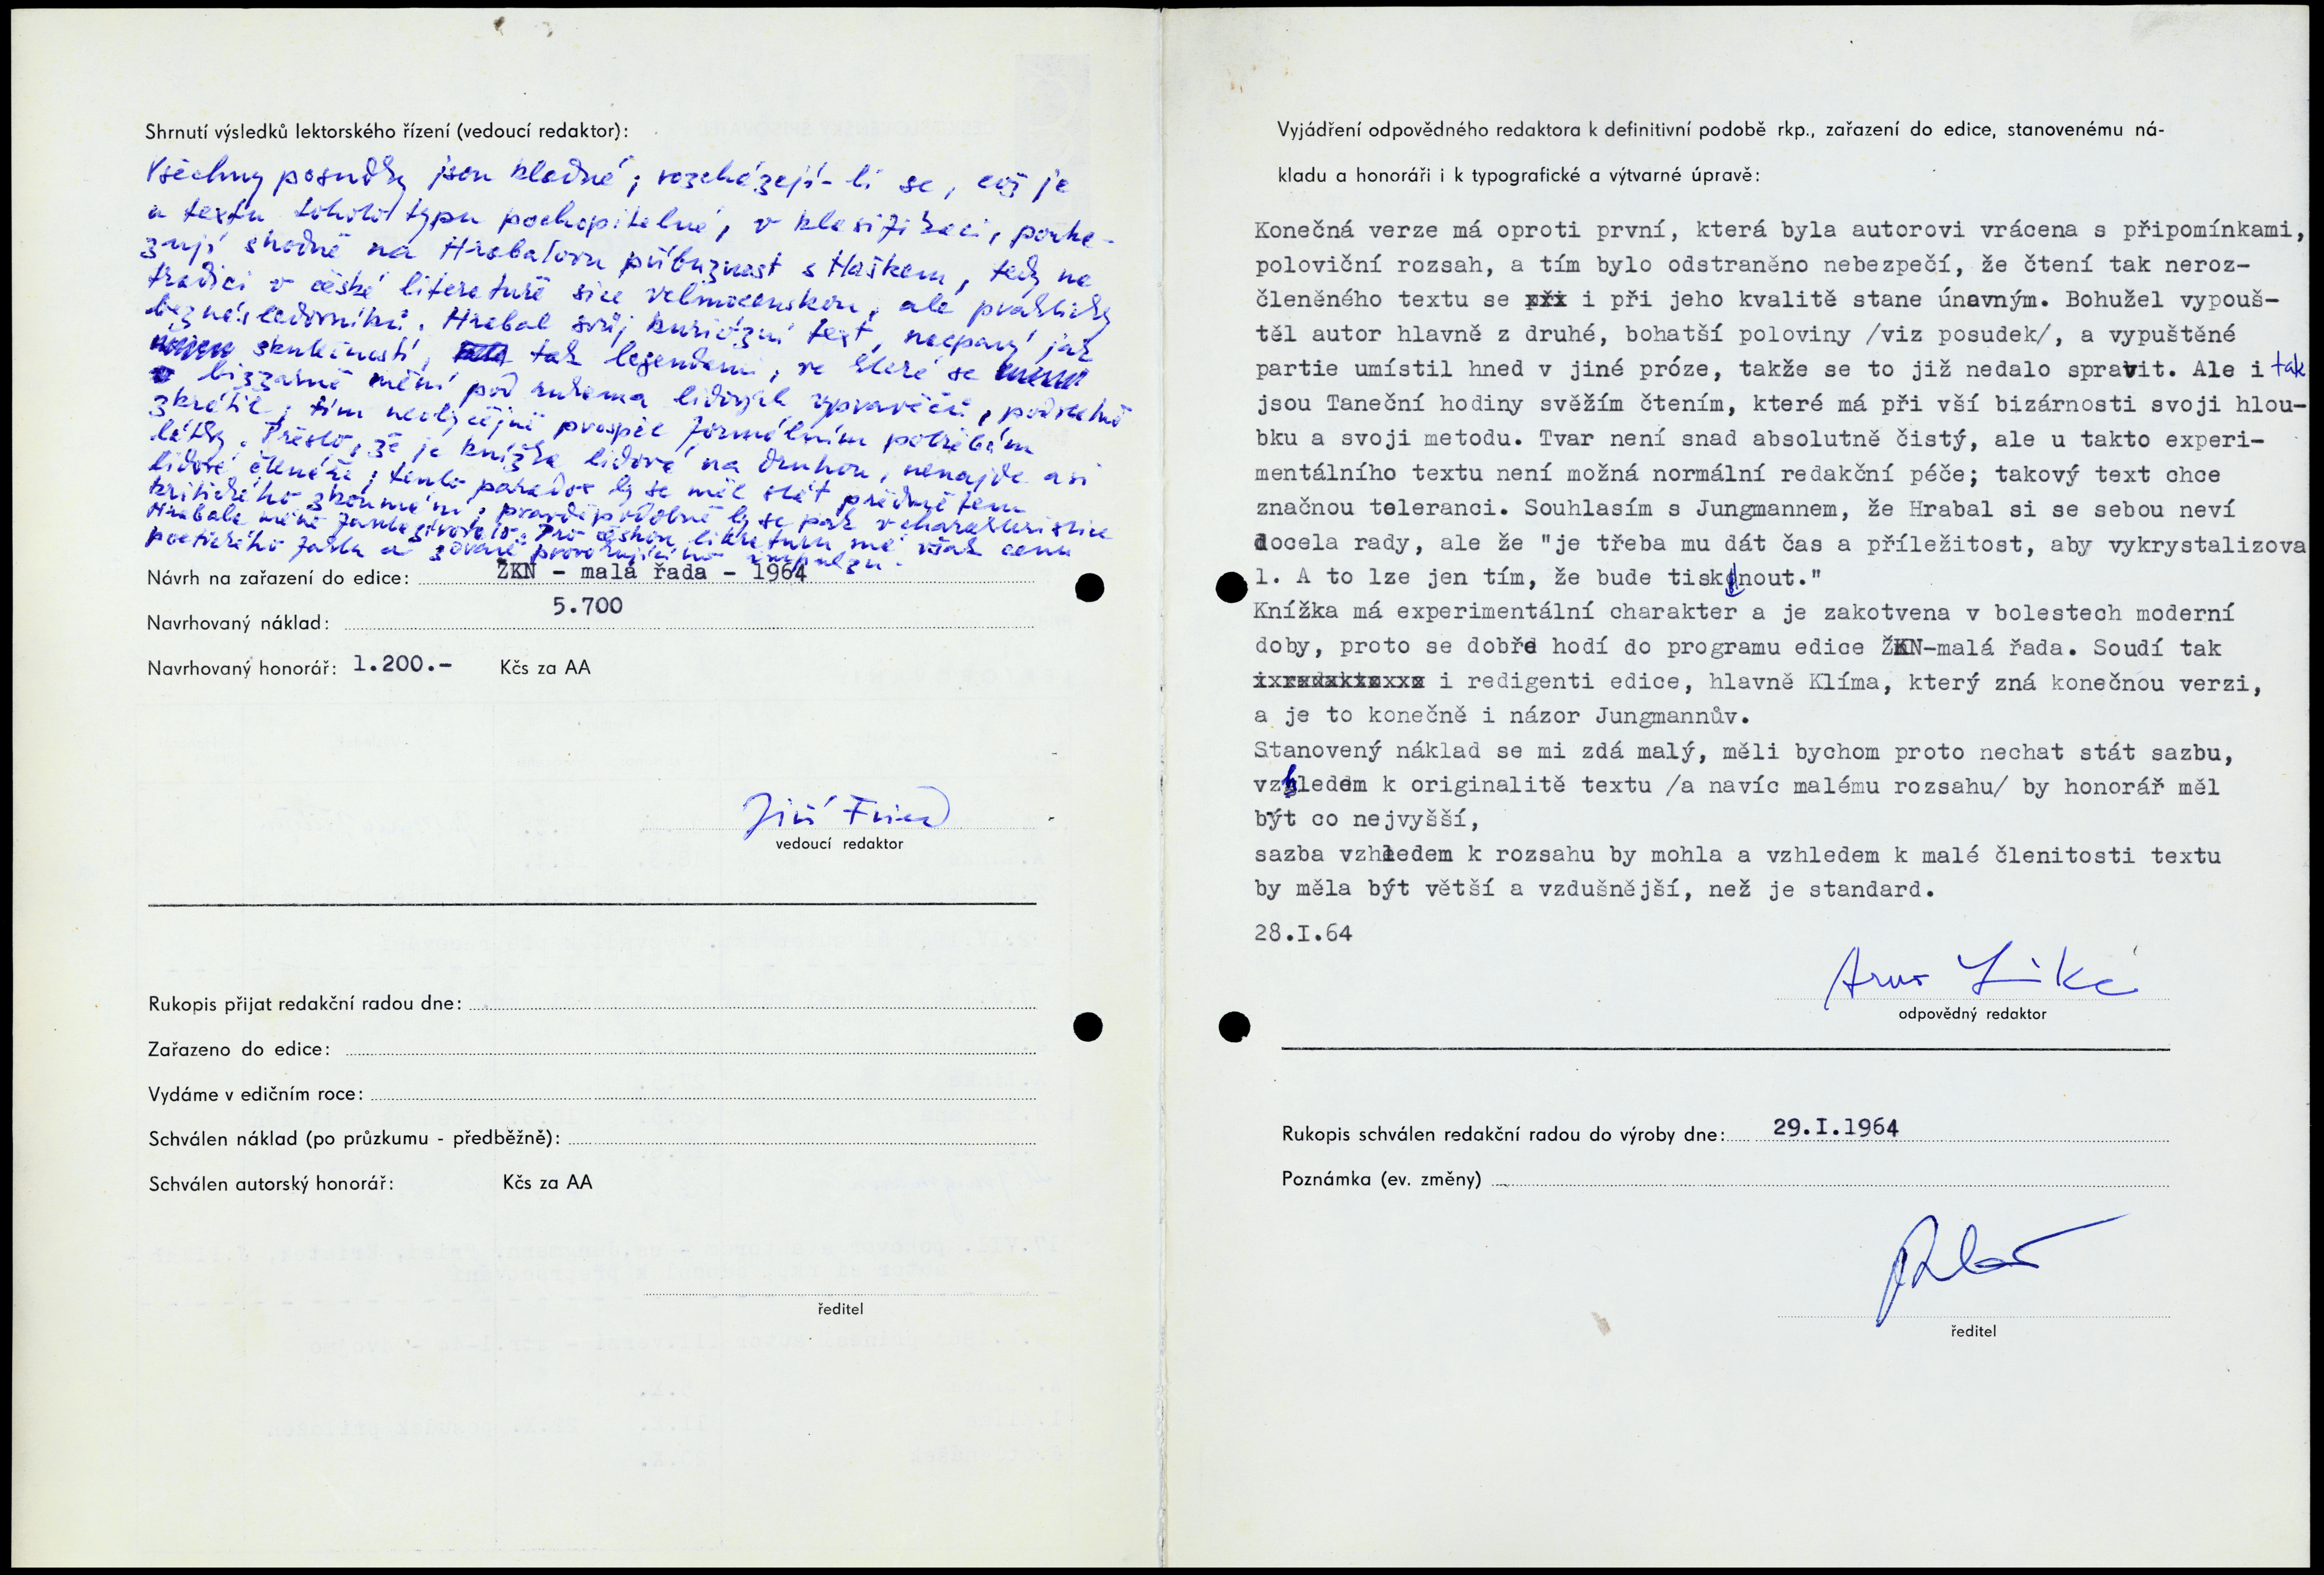 Shrnutí výsledků lektorského řízení (vedoucí redaktor):
Všechny posudky jsou kladné; rozcházejí-li se, což je
u textu tohoto typu pochopitelné, v klasifikaci, pouka-
zují shodně na Hrabalovu příbuznost s Haškem, tedy na
tradici v české literatuře sice velmocenskou, ale prakticky
bez následovníků. Hrabal svůj kuriózní text, neopírá jak
skutečností, tak legendami, ve které se
bizzarně mění pod rukama lidových vypravěčů, podstatně
zkrátil; tím neobyčejně prospěl formálním potřebám
látky. Přesto, že je knížka lidová na druhou, nenajde asi
lidové čtenáře; tento paradox by se měl stát předmětem
kritického zkoumání; pravděpodobně by se pak v charakteristice
Hrabala méně Pro českou literaturu má však cenu
poetického a provokujícího impulzu.
Návrh na zařazení do edice: ŽKN - malá řada - 1964
Navrhovaný náklad: 5.700
Navrhovaný honorář: 1.200.- Kčs za AA
Jiří Fried
vedoucí redaktor
Rukopis přijat redakční radou dne:
Zařazeno do edice:
Vydáme v edičním roce:
Schválen náklad (po průzkumu - předběžně):
Schválen autorský honorář: Kčs za AA
ředitel
Vyjádření odpovědného redaktora k definitivní podobě rkp., zařazení do edice, stanovenému ná-
kladu a honoráři i k typografické a výtvarné úpravě:
Konečná verze má oproti první, která byla autorovi vrácena s připomínkami,
poloviční rozsah, a tím bylo odstraněno nebezpečí, že čtení tak neroz-
členěného textu se i při jeho kvalitě stane únavným. Bohužel vypouš-
těl autor hlavně z druhé, bohatší poloviny /viz posudek/, a vypuštěné
partie umístil hned v jiné próze, takže se to již nedalo spravit. Ale i tak
jsou Taneční hodiny svěžím čtením, které má při vší bizárnosti svoji hlou-
bku a svoji metodu. Tvar není snad absolutně čistý, ale u takto experi-
mentálního textu není možná normální redakční péče; takový text chce
značnou toleranci. Souhlasím s Jungmannem, že Hrabal si se sebou neví
docela rady, ale že "je třeba mu dát čas a příležitost, aby vykrystalizova
l. A to lze jen tím, že bude tisknout."
Knížka má experimentální charakter a je zakotvena v bolestech moderní
doby, proto se dobře hodí do programu edice ŽKN-malá řada. Soudí tak
i redigenti edice, hlavně Klíma, který zná konečnou verzi,
a je to konečně i názor Jungmannův.
Stanovený náklad se mi zdá malý, měli bychom proto nechat stát sazbu,
vzhledem k originalitě textu /a navíc malému rozsahu/ by honorář měl
být co nejvyšší,
sazba vzhledem k rozsahu by mohla a vzhledem k malé členitosti textu
by měla být větší a vzdušnější, než je standard.
28.I.64
odpovědný redaktor
Rukopis schválen redakční radou do výroby dne: 29.I.1964
Poznámka (ev. změny)
ředitel